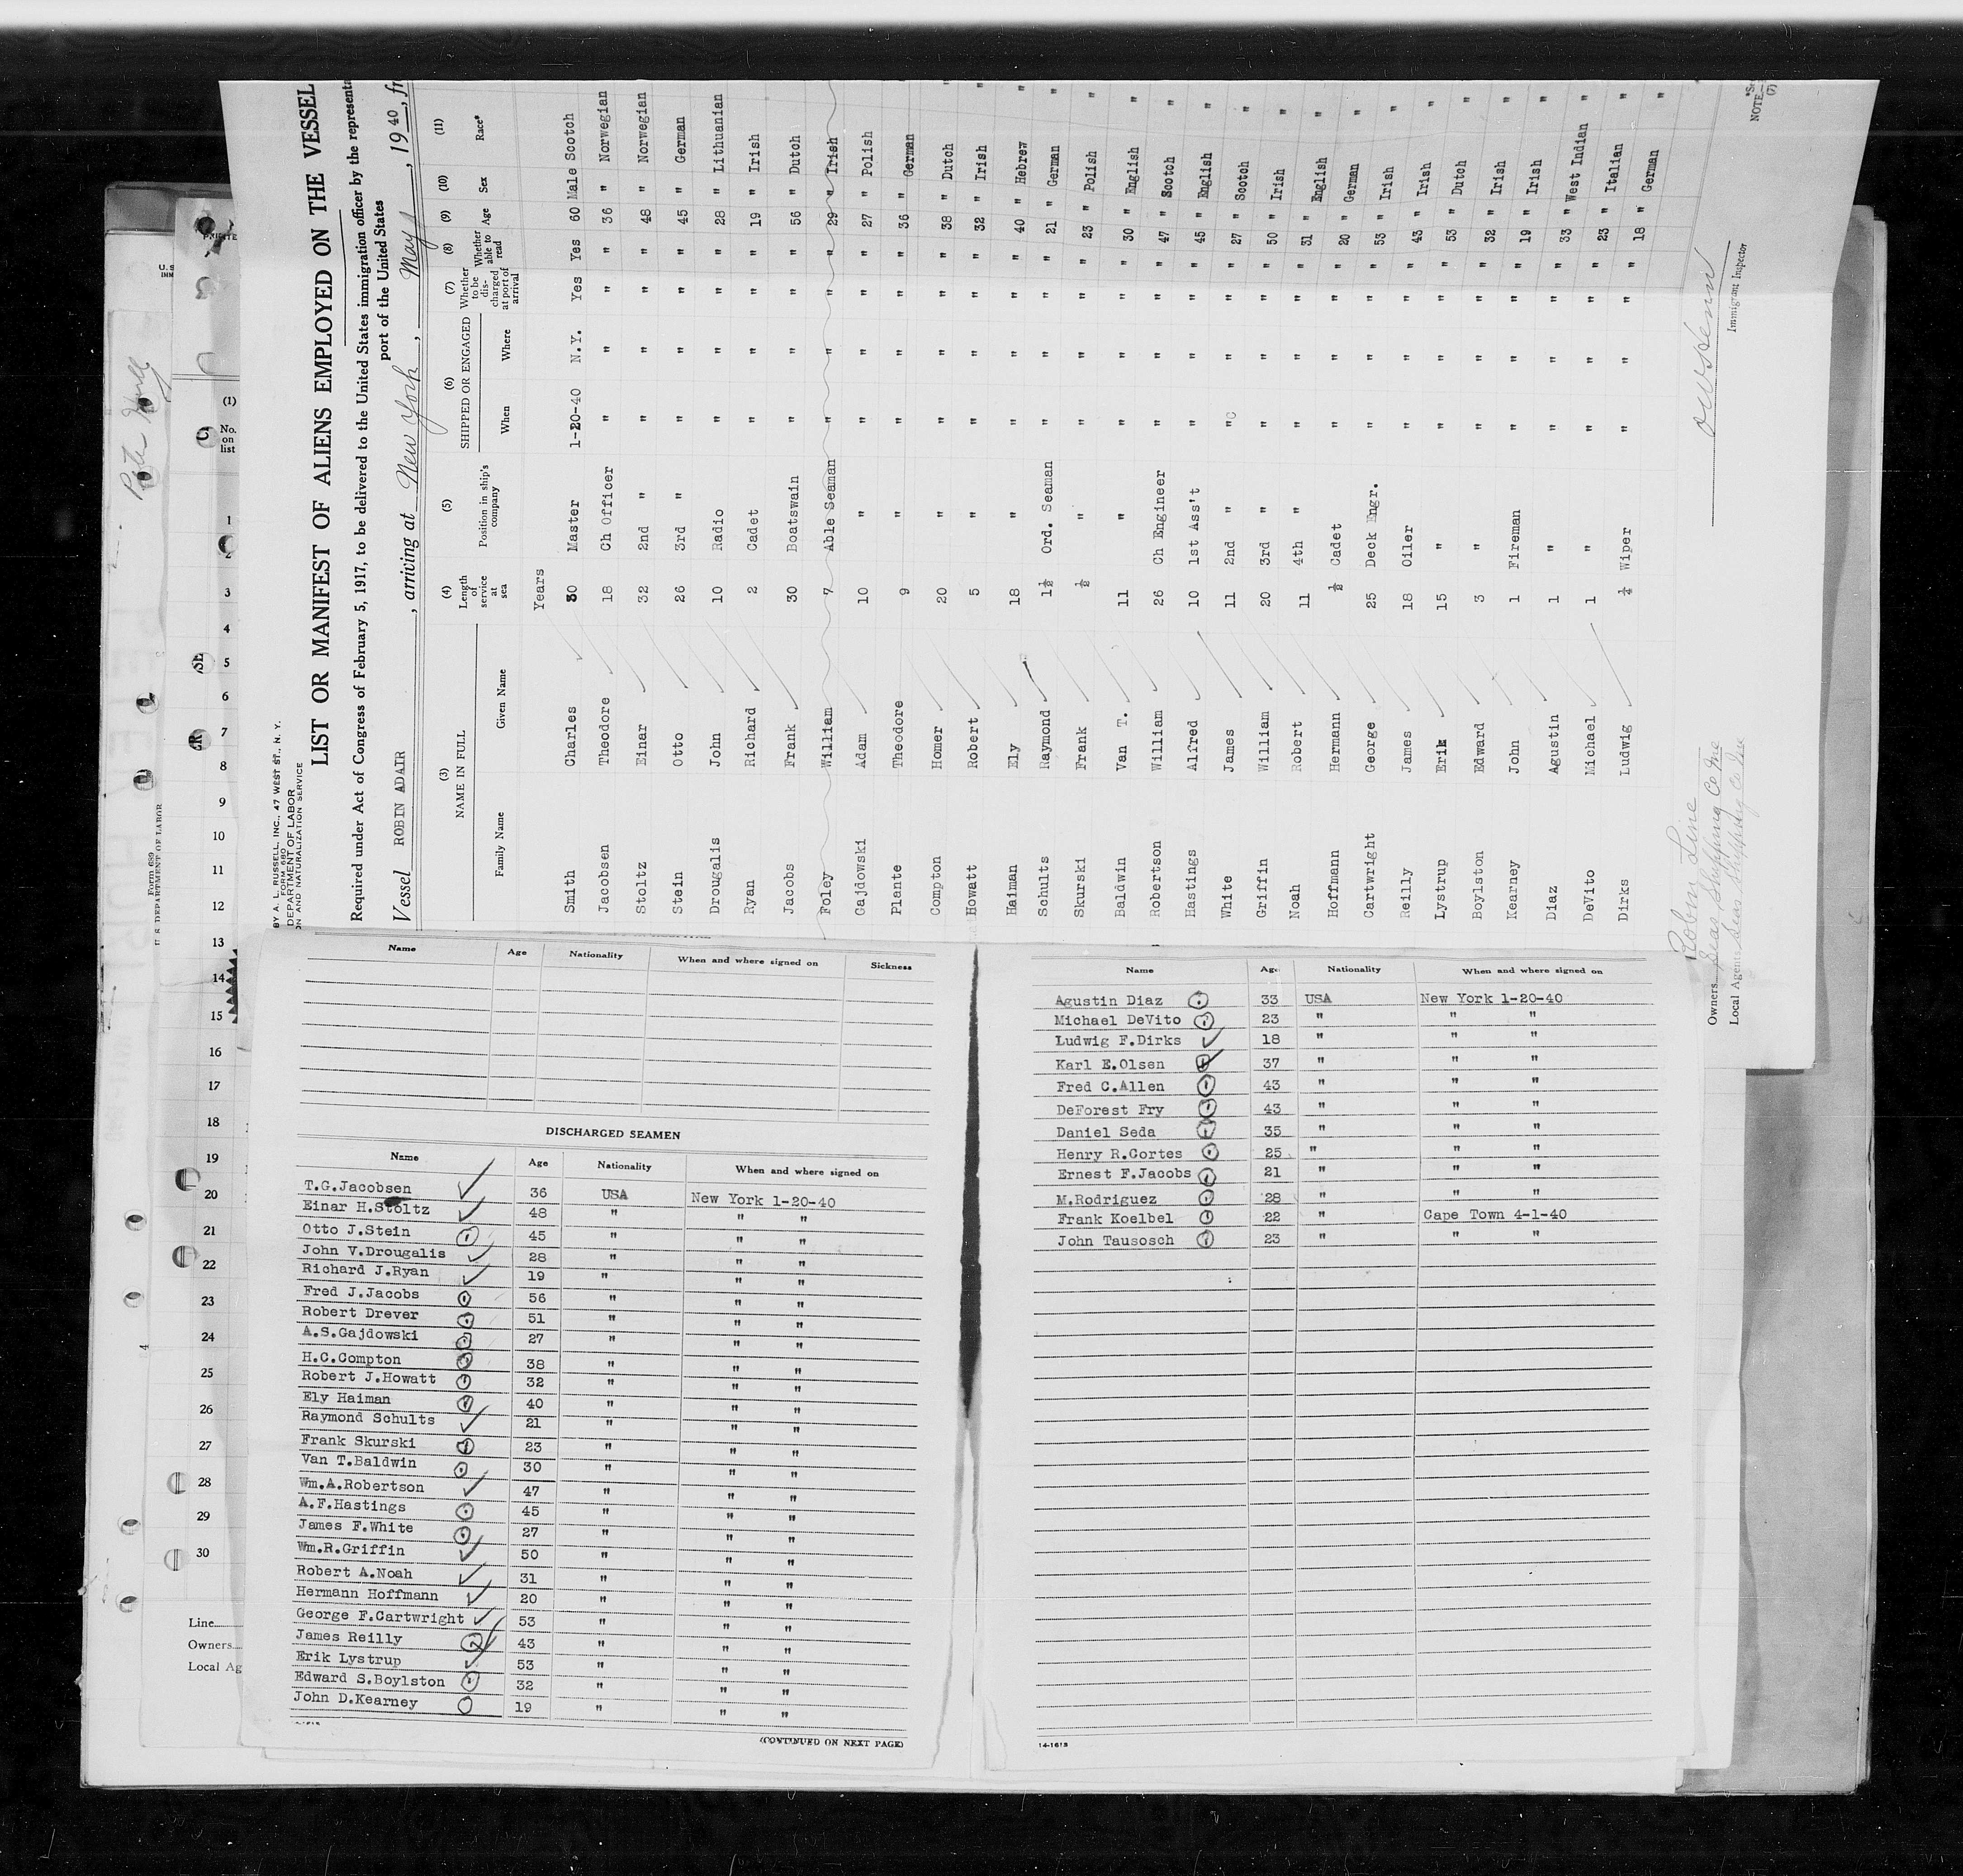 BY A. L. RUSSELL, INC., 47 WEST ST., N. Y.
FORM 680
DEPARTMENT OF LABOR
ON AND NATURALIZATION SERVICE
LIST OR MANIFEST OF ALIENS EMPLOYED ON THE VESSEL
Required under Act of Congress of February 5, 1917, to be delivered to the United States immigration officer by the represent
port of the United States
Vessel ROBIN ADAIR, arriving at New York, May, 1940, fr
(3) (4) (5) (6) (7) (8) (9) (10) (11)
NAME IN FULL Length of service at sea Position in ship's company SHIPPED OR ENGAGED Whether to be discharged at port of arrival Whether able to read Age Sex Race*
Family Name Given Name When Where
Years
Smith Charles 30 Master 1-20-40 N.Y. Yes Yes 60 Male Scotch
Jacobsen Theodore 18 Ch Officer " " " " 36 " Norwegian
Stoltz Einar 32 2nd " " " " " 48 " Norwegian
Stein Otto 26 3rd " " " " " 45 " German
Drougalis John 10 Radio " " " " 28 " Lithuanian
Ryan Richard 2 Cadet " " " " 19 " Irish
Jacobs Frank 30 Boatswain " " " " 56 " Dutch
Foley William 7 Able Seaman " " " " 29 " Irish
Gajdowski Adam 10 " " " " " 27 " Polish
Plante Theodore 9 " " " " " 36 " German
Compton Homer 20 " " " " " 38 " Dutch "
Howatt Robert 5 " " " " " 32 " Irish "
Haiman Ely 18 " " " " " 40 " Hebrew "
Schults Raymond 1½ Ord. Seaman " " " " 21 " German "
Skurski Frank ½ " " " " " 23 " Polish "
Baldwin Van T. 11 " " " " " 30 " English "
Robertson William 26 Ch Engineer " " " " 47 " Scotch "
Hastings Alfred 10 1st Ass't " " " " 45 " English "
White James 11 2nd " " " " " 27 " Scotch "
Griffin William 20 3rd " " " " " 50 " Irish "
Noah Robert 11 4th " " " " " 31 " English "
Hoffmann Hermann ½ Cadet " " " " 20 " German "
Cartwright George 25 Deck Engr. " " " " 53 " Irish "
Reilly James 18 Oiler " " " " 43 " Irish "
Lystrup Erik 15 " " " " " 53 " Dutch "
Boylston Edward 3 " " " " " 32 " Irish "
Kearney John 1 Fireman " " " " 19 " Irish "
Diaz Agustin 1 " " " " " 33 " West Indian "
DeVito Michael 1 " " " " " 23 " Italian "
Dirks Ludwig ¼ Wiper " " " " 18 " German "
Robin Line
Owners Seas Shipping Co Inc
Local Agents Seas Shipping Co Inc
Immigrant Inspector
NOTE
(7)
Form 689
U. S. DEPARTMENT OF LABOR
(1)
No. on list
1
3
4
5
6
7
8
9
10
11
12
13
14
15
16
17
18
19
20
21
22
23
24
25
26
27
28
29
30
Line
Owners
Local Ag
Name Age Nationality When and where signed on Sickness
DISCHARGED SEAMEN
Name Age Nationality When and where signed on
T.G.Jacobsen 36 USA New York 1-20-40
Einar H.Stoltz 48 " " "
Otto J.Stein 45 " " "
John V.Drougalis 28 " " "
Richard J.Ryan 19 " " "
Fred J.Jacobs 56 " " "
Robert Drever 51 " " "
A.S.Gajdowski 27 " " "
H.C.Compton 38 " " "
Robert J.Howatt 32 " " "
Ely Haiman 40 " " "
Raymond Schults 21 " " "
Frank Skurski 23 " " "
Van T.Baldwin 30 " " "
Wm.A.Robertson 47 " " "
A.F.Hastings 45 " " "
James F.White 27 " " "
Wm.R.Griffin 50 " " "
Robert A.Noah 31 " " "
Hermann Hoffmann 20 " " "
George F.Cartwright 53 " " "
James Reilly 43 " " "
Erik Lystrup 53 " " "
Edward S.Boylston 32 " " "
John D.Kearney 19 " " "
(CONTINUED ON NEXT PAGE)
Name Age Nationality When and where signed on
Agustin Diaz 33 USA New York 1-20-40
Michael DeVito 23 " " "
Ludwig F.Dirks 18 " " "
Karl E.Olsen 37 " " "
Fred C.Allen 43 " " "
DeForest Fry 43 " " "
Daniel Seda 35 " " "
Henry R.Cortes 25 " " "
Ernest F.Jacobs 21 " " "
M.Rodriguez 28 " " "
Frank Koelbel 22 " Cape Town 4-1-40
John Tausosch 23 " " "
14-1618